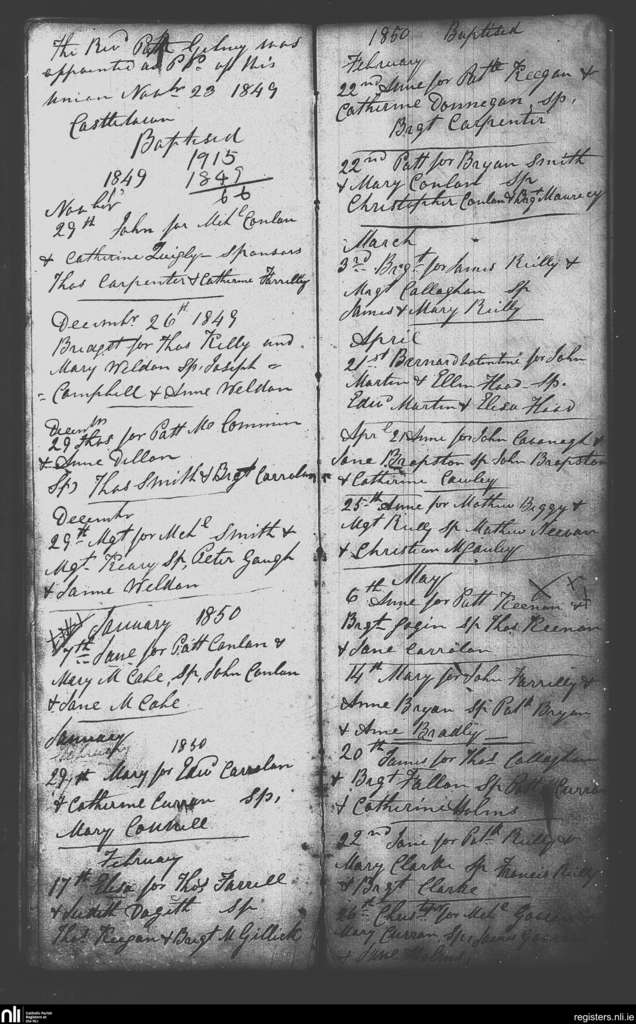 The Revd Patk Gilney was
appointed as P.P. of this
Union Novbr 23 1849
Castletown
Baptised
1915
1849 1849
66
Novbr
29th John for Mchl Conlan
& Catherine Quigly - Sponsors
Thos Carpenter & Catherine Farrelly
Decembr 26th 1849
Bridgett for Thos Kelly and
Mary Weldon Sp. Joseph =
= Campbell & Anne Weldon
Decembr
29 Thos for Patt Mc
& Anne Dillon
Sp, Thos Smith & Brgt Carrolan
Decembr
29th Mgt for Mchl Smith &
Mgt Keary Sp, Peter Gaugh
& Weldon
January 1850
7th Jane for Patt Conlan &
Mary McCabe, Sp, John Conlan
& Jane McCabe
January
1850
29th Mary for Edwd Carrolan
& Catherine Curran Sp,
Mary Connell
February
17th Elisa for Thos Farrell
& Judith Sp
Thos Keegan & Brigt McGillick
1850 Baptised
February
22nd Anne for Patk Keegan &
Catherine Donnegan, Sp,
Brgt Carpenter
22nd Patt for Bryan Smith
& Mary Conlan Sp
Christopher Conlan & Brgt
March
3rd Brgt for James Reilly &
Mrgt Callaghan Sp
James & Mary Reilly
April
21st Bernard for John
Martin & Ellen Hood Sp.
Edwd Martin & Elisa Hood
Aprl 21 Anne for John Cavanagh &
Jane Brapston Sp John Brapston
& Catherine Cawley
25th Anne for Mathew Biggy &
Mgt Reilly Sp Mathew
& Christian McCauley
May
6th Anne for Patt Keenan &
Brgt Gogin Sp Thos Keenan
& Jane Carrolan
14th Mary for John Farrelly &
Anne Bryan Sp Patk Bryan
& Anne Bradly
20th James for Thos Callaghan
& Brgt Fallon Sp Patt Curran
& Catherine Holms
22nd Jane for Patk Reilly &
Mary Clarke Sp Francis Reilly
& Brgt Clarke
26th Christ for Mchl
Mary Curran, Sp, James
& Jane
nli Catholic Parish
Registers at
the NLI
registers.nli.ie